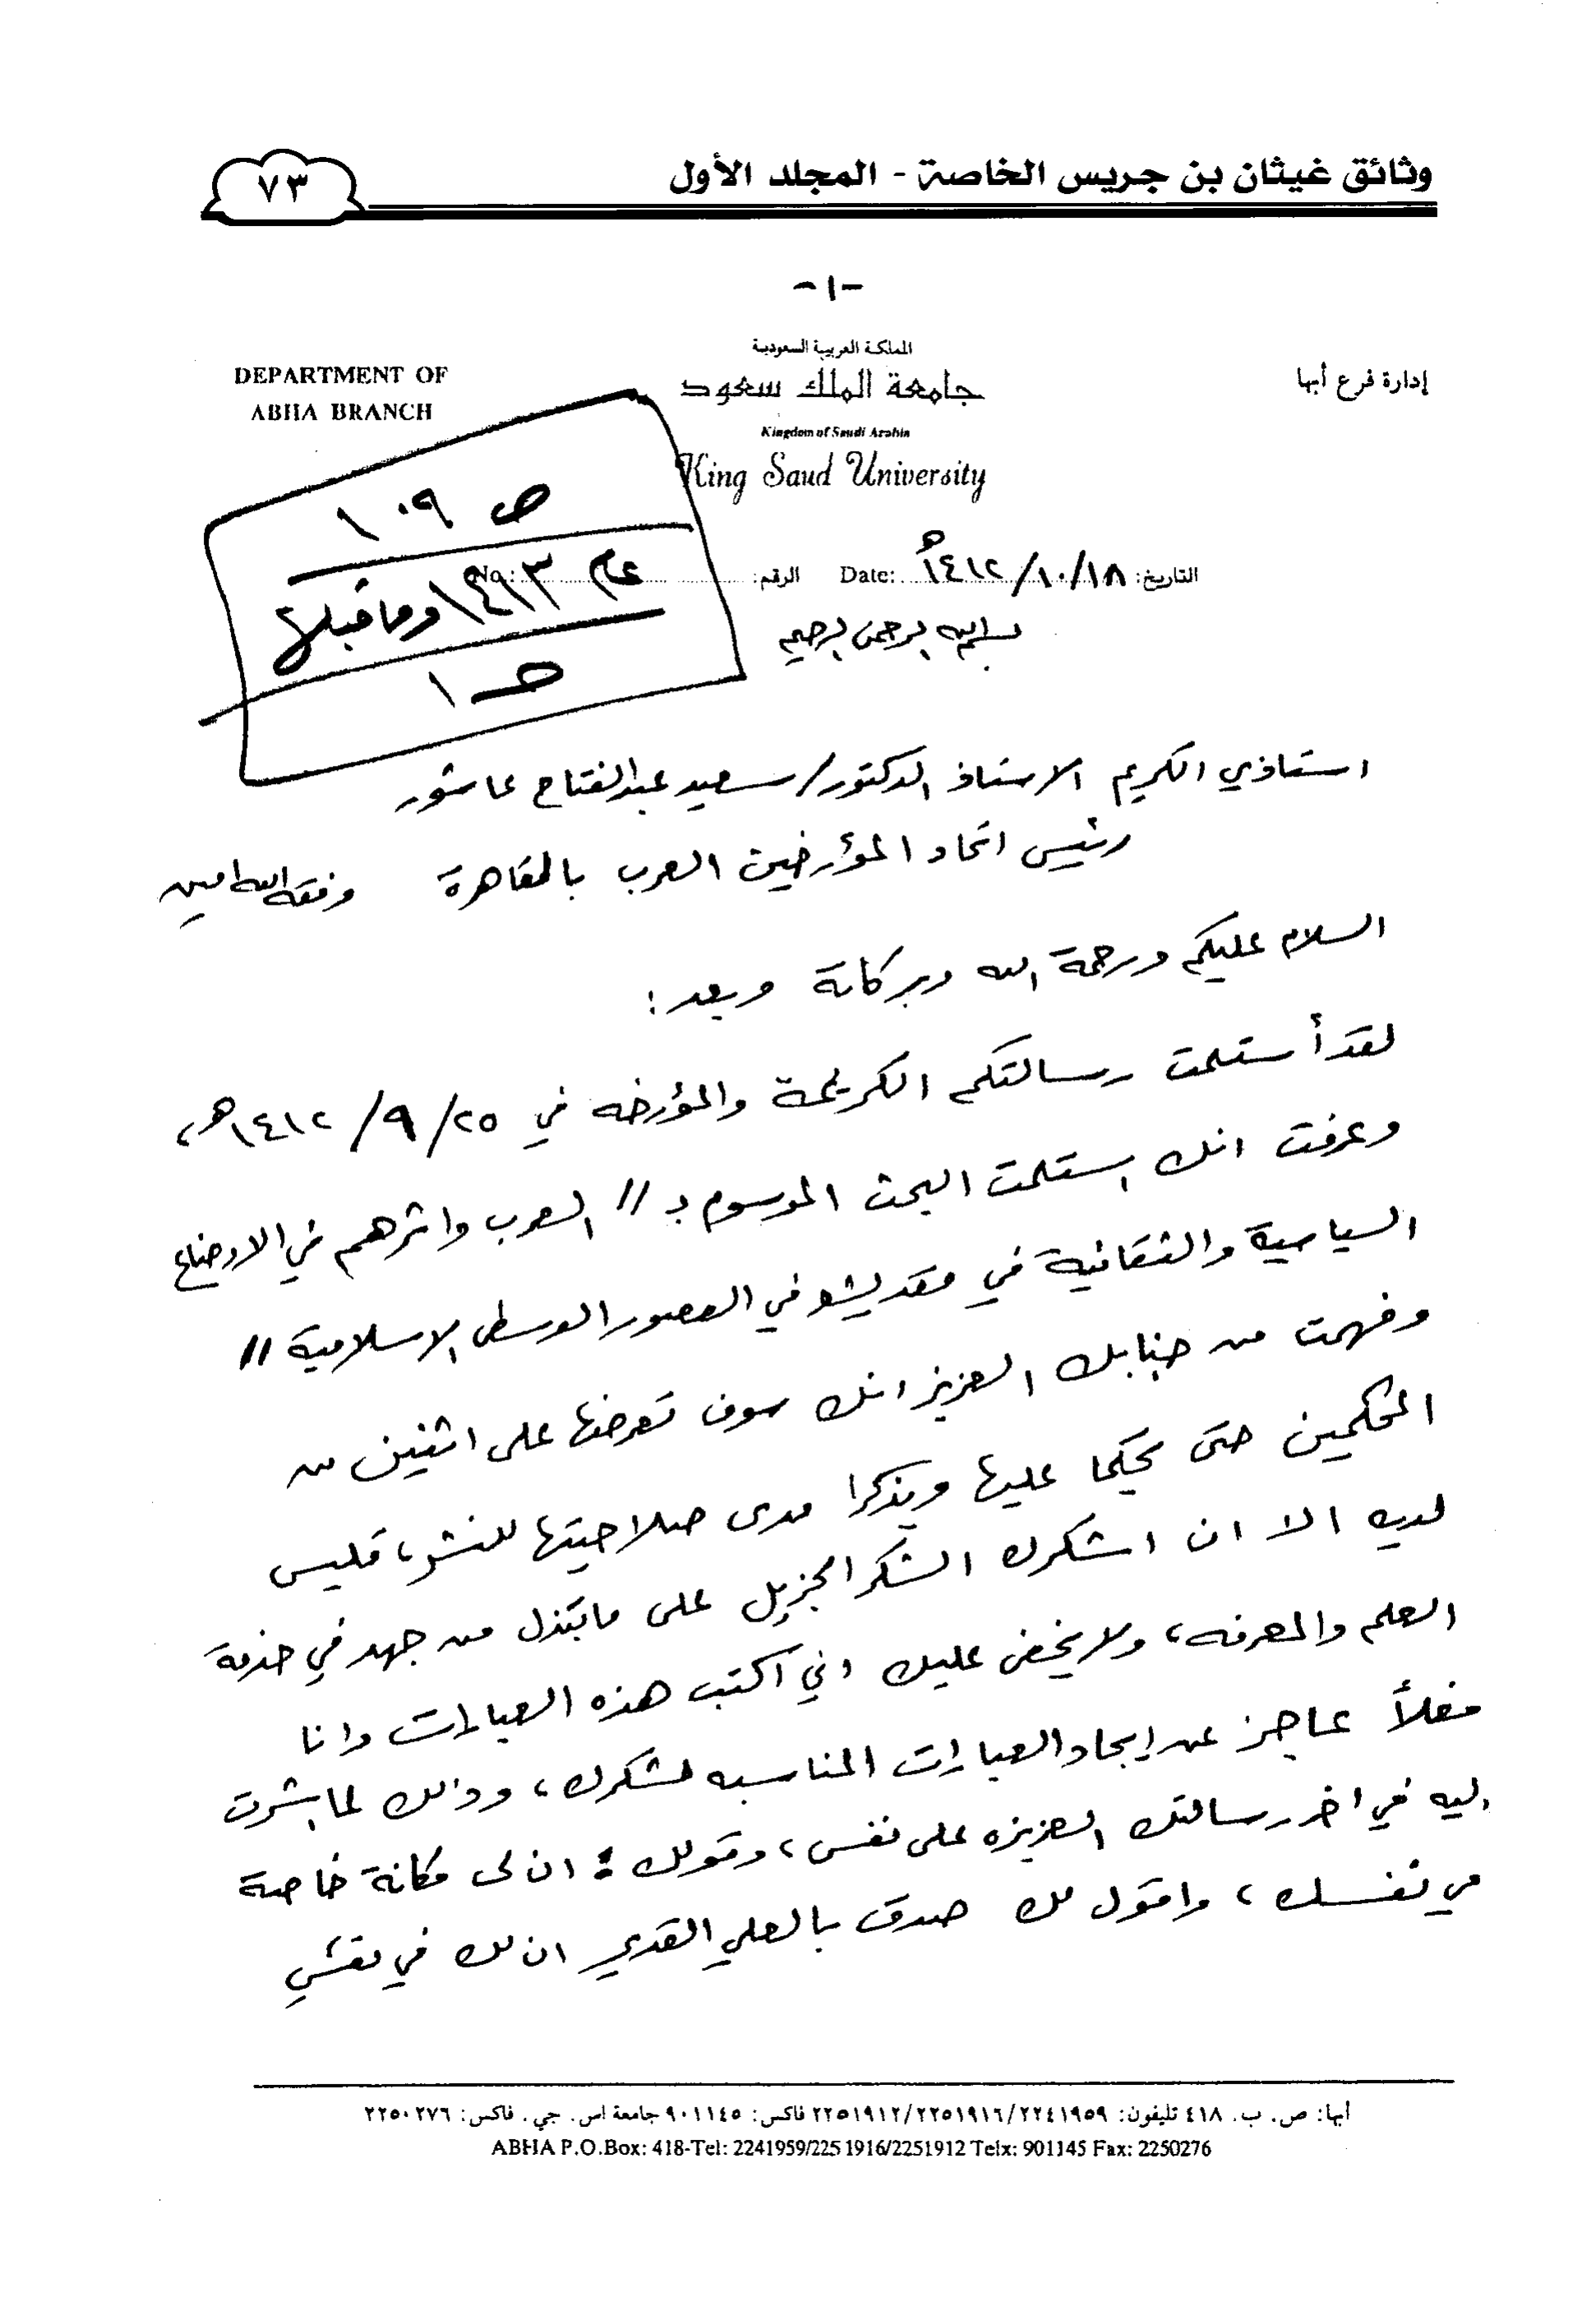 وثائق غيثان بن جريس الخاصة - المجلد الأول
٧٣
-١-
المملكة العربية السعودية
جامعة الملك سعود
Kingdom of Saudi Arabia
King Saud University
إدارة فرع أبها
DEPARTMENT OF
ABHA BRANCH
ص ١٠٩
عام ١٤١٣ وما قبلها
حـ ١
التاريخ: ١٤١٢/١٠/١٨هـ Date: الرقم: No.:
بسم الله الرحمن الرحيم
استاذي الكريم الاستاذ الدكتور/ سعيد عبدالفتاح عاشور
رئيس اتحاد المؤرخين العرب بالقاهرة وفقه الله امين
السلام عليكم ورحمة الله وبركاتة وبعد:
لقد أستلمت رسالتكم الكريمة والمؤرخه في ٢٥/ ٩/ ١٤١٢هـ،
وعرفت انك استلمت البحث الموسوم بـ // العرب واثرهم في الاوضاع
السياسية والثقافية في مقديشو في العصور الوسطى الاسلامية //
وفهمت من جنابك العزيز انك سوف تعرضها على اثنين من
المحكمين حتى يحكما عليها ويذكرا مدى صلاحيتها للنشر، فليس
لديه الا ان اشكرك الشكر الجزيل على ماتبذل من جهد في خدمة
العلم والمعرفه، ولا يخفى عليك اني اكتب هذه العبارات وانا
فعلاً عاجز عن ايجاد العبارات المناسبه لشكرك، وذالك لما اشرت
اليه في اخر رسالتك العزيزه على نفسي، وقولك: ان لى مكانة خاصة
في نفسك، واقول لك صدق بالعلي القدير ان لك في نفسي
أبها: ص. ب. ٤١٨ تليفون: ٢٢٥١٩١٢/٢٢٥١٩١٦/٢٢٤١٩٥٩ فاكس: ٩٠١١٤٥ جامعة اس. جي. فاكس: ٢٢٥٠٢٧٦
ABHA P.O.Box: 418-Tel: 2241959/2251916/2251912 Telx: 901145 Fax: 2250276